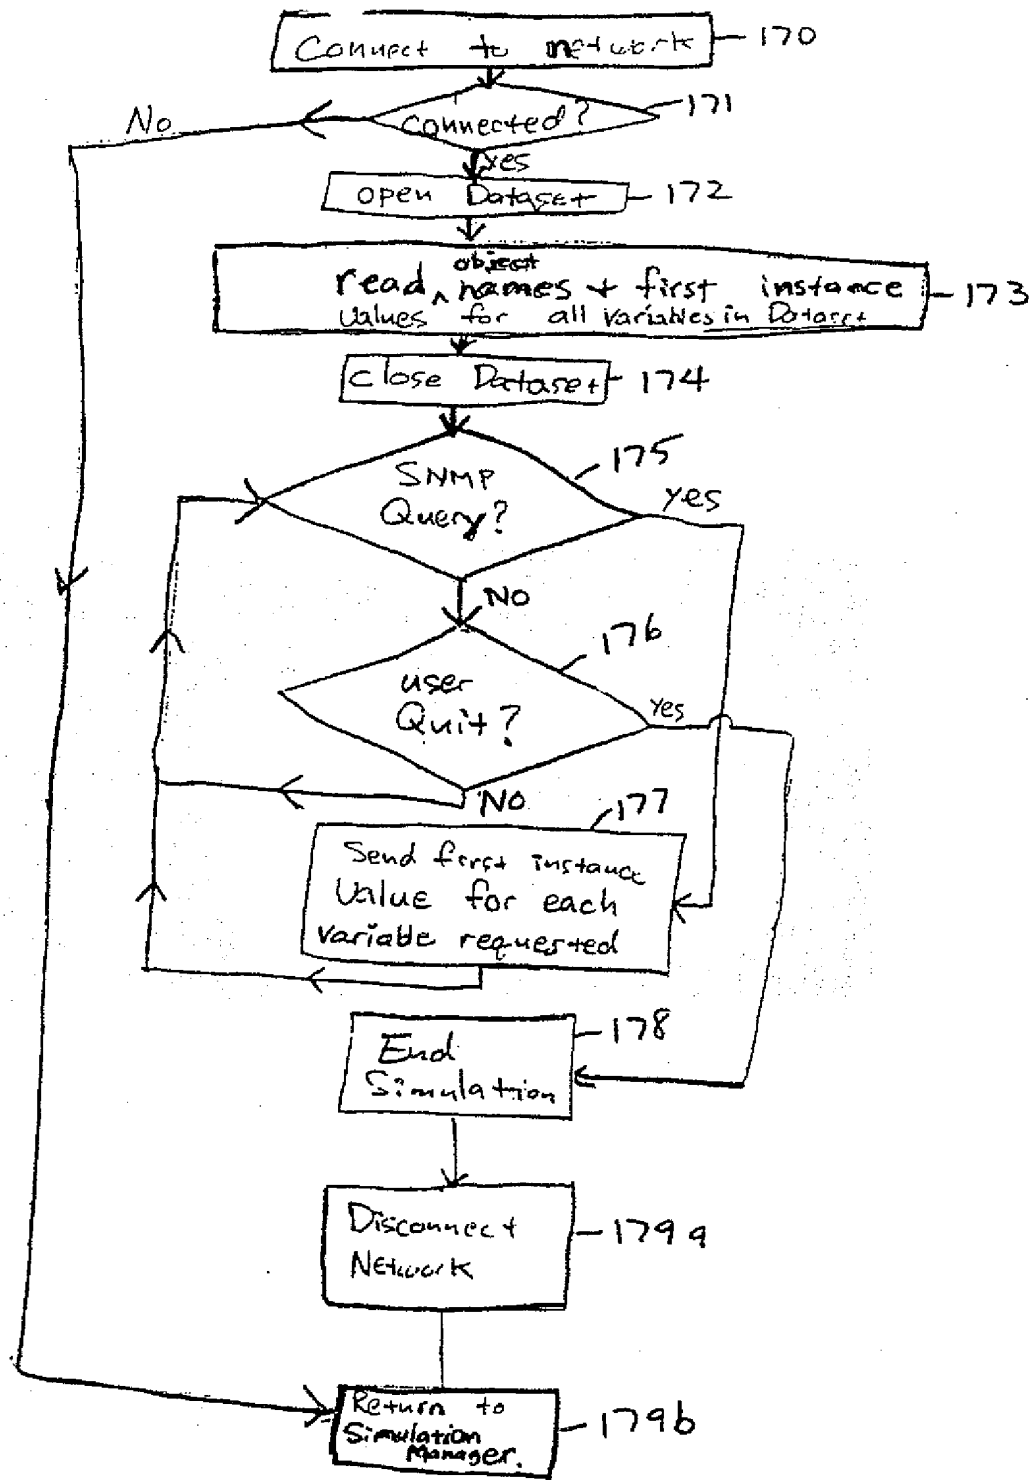 Connect to network 170
connected? 171
No
Yes
open Dataset 172
object
read ^ names + first instance
Values for all variables in Dataset 173
close Dataset 174
SNMP
Query? 175
yes
NO
user
Quit? 176
Yes
NO
177
Send first instance
Value for each
variable requested
End
Simulation 178
Disconnect
Network 179a
Return to
Simulation
Manager. 179b